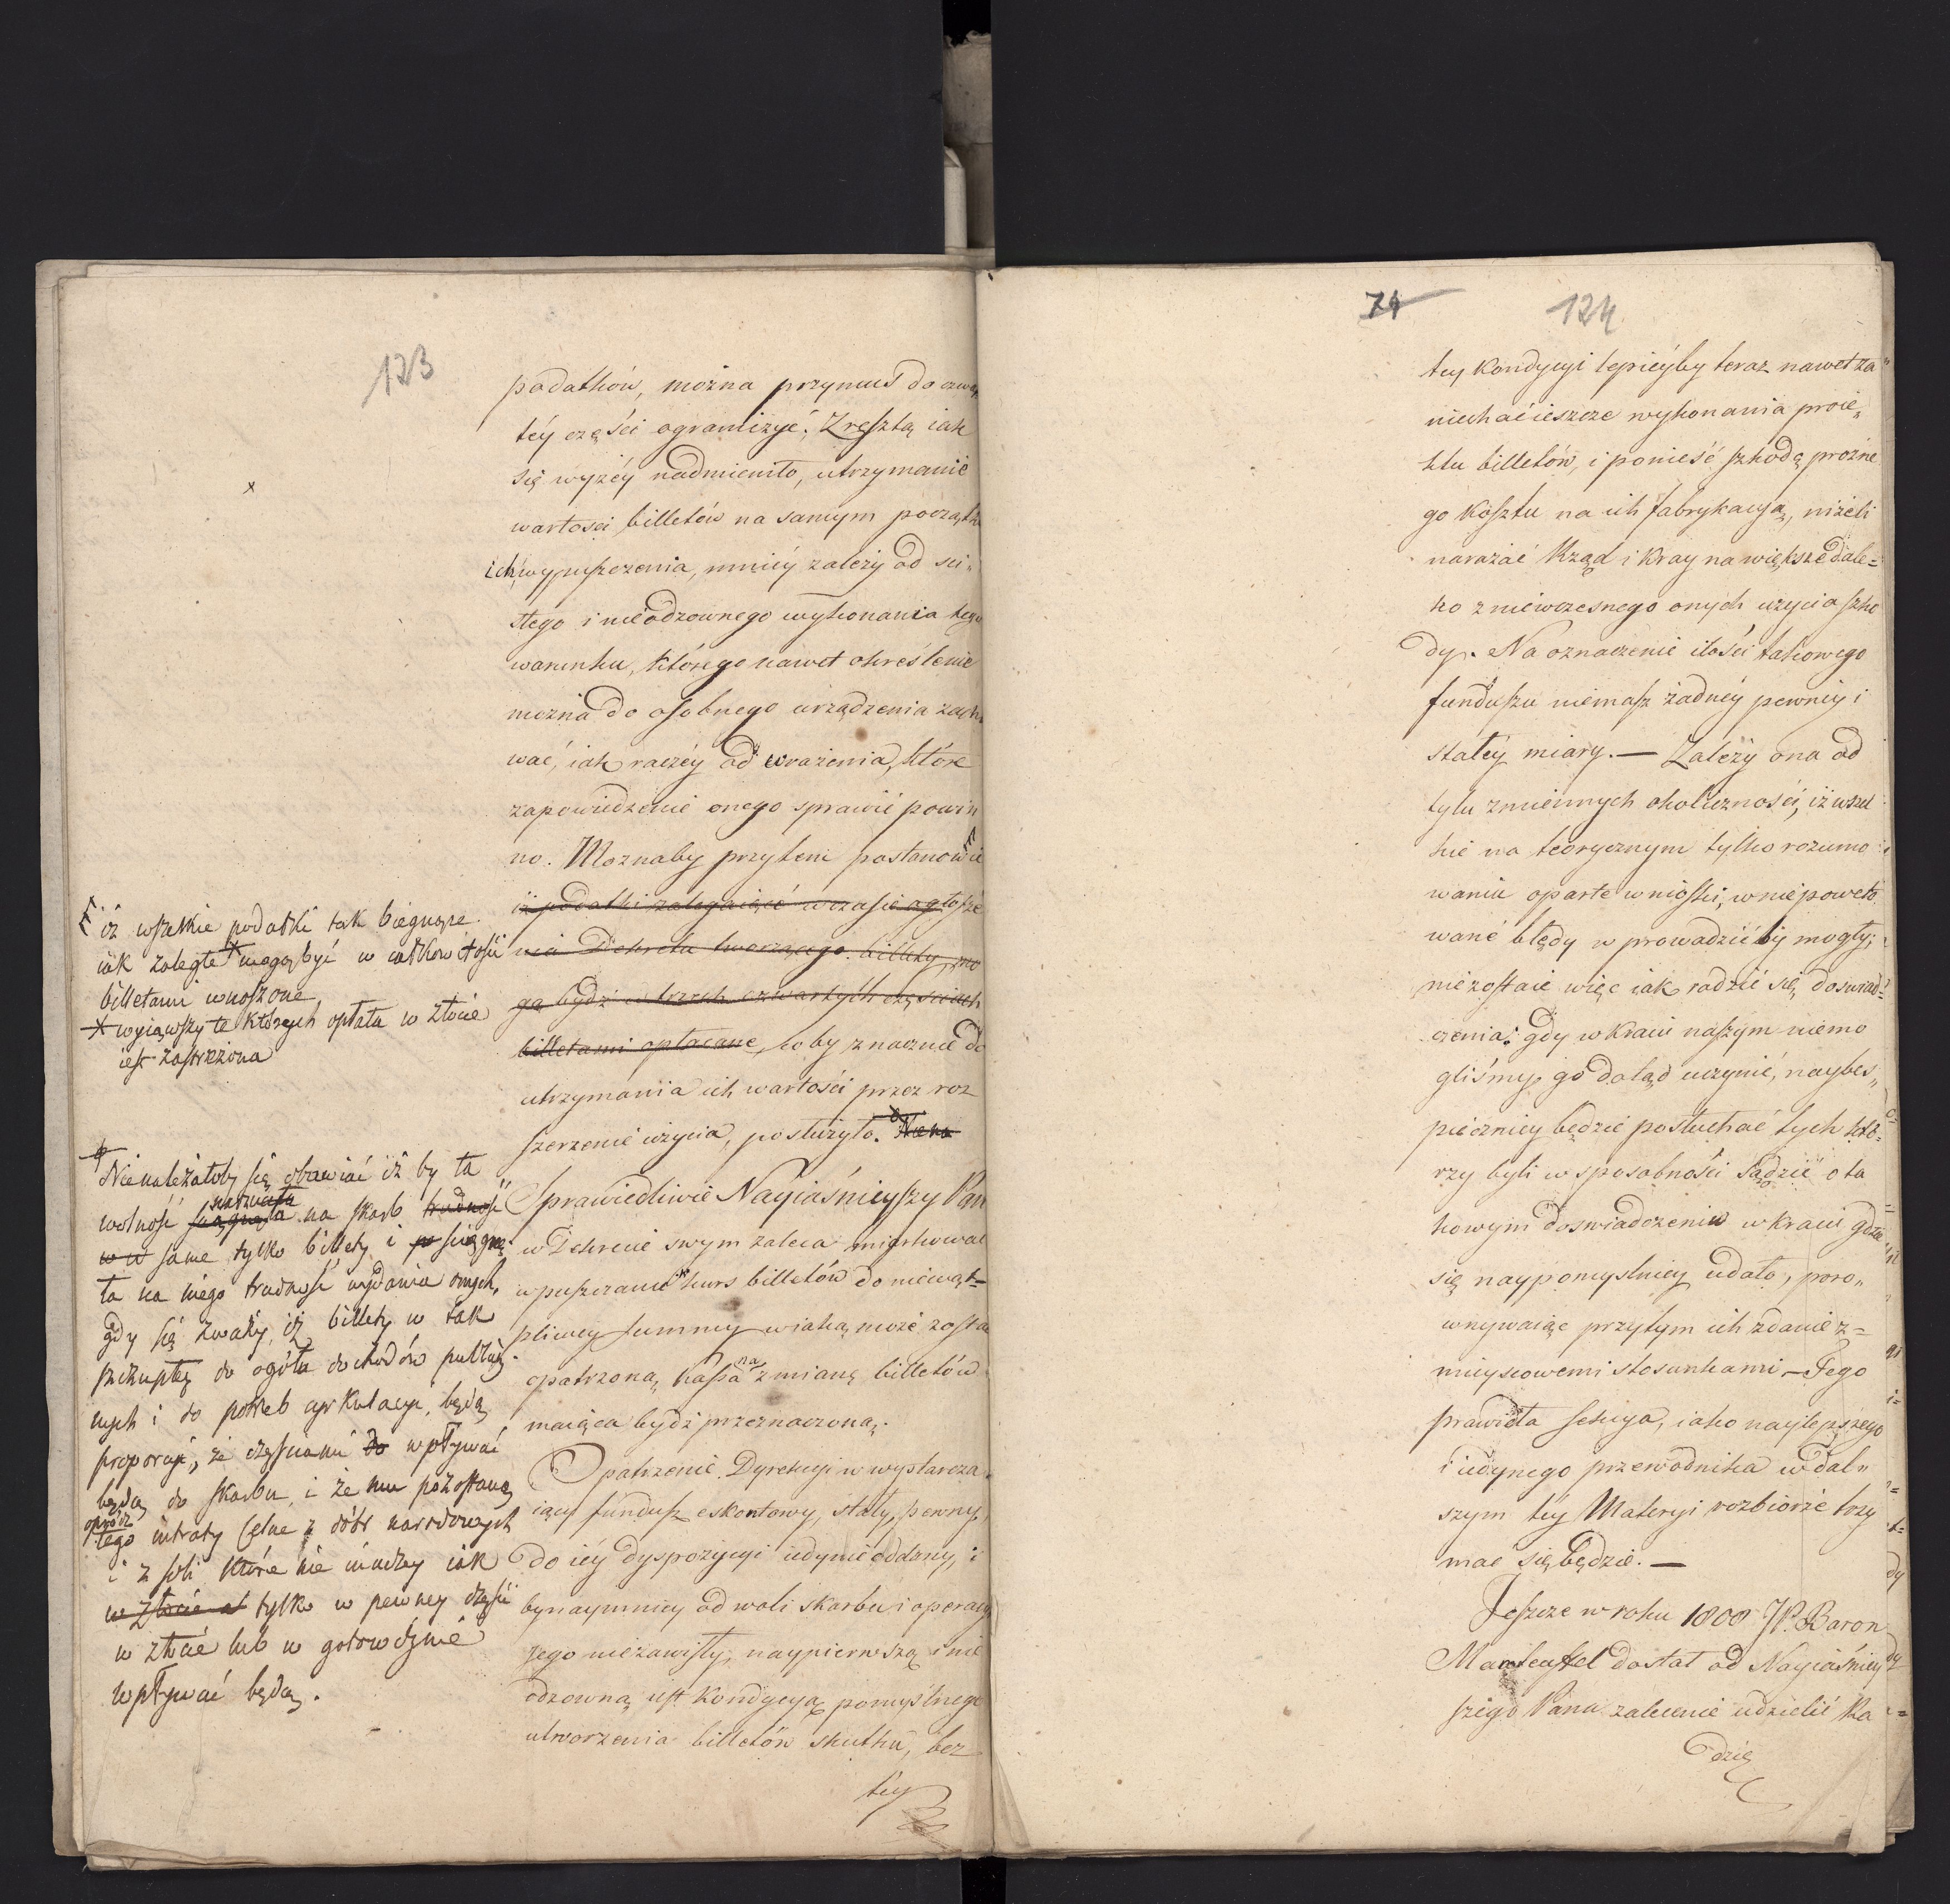 123
podatków, można przymus do czwar
téy części ograniczyć. Zresztą iak
się wyżéy nadmieniło, utrzymanie
wartości billetów na samym początk
ich wypuszczenia, mniéy zależy od ści„
słego i nieodzownego wykonania tego
warunku, którego nawet określenie
można do osobnego urządzenia zacho
wać, iak raczéy od wrażenia, które
zapowiedzenie onego sprawić powin
no. Moznaby przytem postanowić
iż podatki zalegaiące w czasie ogłosze
nia Dekretu tworzącego billety, mo
gą bydź w trzech czwartych częściach
billetami opłacane, coby znacznie do
utrzymania ich wartości przez roz
szerzenie użycia, posłużyło.
Sprawiedliwie Nayiaśnieyszy Pan
w Dekrecie swym zaleca miarkować
wpuszczanie w kurs billetów do niewąt=
pliwey summy w iaką może zostać
opatrzoną kassa na zmianę billetów
maiąca bydź przeznaczoną.
Opatrzenie Dyrekcyi w wystarcza
iący fundusz eskontowy, stały, pewny,
do iéy dyspozycyi iedynie oddany, i
bynaymniey od woli skarbu i operacyi
jego niezawisły, naypierwszą i nie
odzowną iest kondycyą pomyślnego
utworzenia billetów skutku, bez
téy
iż wszelkie podatki tak biegnące
iak zaległe mogą być w całkowitości
billetami wnoszone,
wyiąwszy te których opłata w złocie
iest zastrzeżona
Nie należałoby się obawiać iż by ta
wolność na skarb trudność
w w same tylko billety i po ściągnę
ła na niego trudność wydania onych,
gdy się zważy, iż billety w tak
szczupłey do ogółu dochodów publicz
nych i do potrzeb cyrkulacyi, będą
proporcyi, że częściami do wpływać
będą do skarbu, i że mu pozostaną
oprócz tego intraty Celne z dóbr narodowych
i z soli które nie inaczey iak
w złocie al tylko w pewney części
w złocie lub w gotowiźnie
wpływać będą.
74
124
tey kondycyi lepieyby teraz nawet za„
niechać ieszcze wykonania proie„
ktu billetów, i ponieść szkodę prożne
go kosztu na ich fabrykacyą, niżeli
narażać Rząd i Kray na większe dale=
ko z niewczesnego onych użycia szko
dy. Na oznaczenie ilości takowego
funduszu niemasz żadnéy pewnéy i
stałéy miary. — Zależy ona od
tylu zmiennych okoliczności, iż wszel
kie na teorycznym tylko rozumo
waniu oparte wnioski, w niepoweto
wane błędy wprowadzić by mogły;
niezostaie więc iak radzić się doswiad=
czenia: gdy w kraiu naszym niemo
gliśmy go dotąd uczynić, naybes„
pieczniey będzie posłuchać tych któ=
rzy byli w sposobności sądzić o ta
kowym doswiadczeniu w kraiu gdzie
się naypomyslniey udało, poro„
wnywaiąc przytym ich zdanie z=
mieyscowemi stosunkami. — Tego
prawidła Sekcya, iako naylepszego
i iedynego przewodnika w dal„
szym téy Materyi rozbiorze trzy
mać się będzie. —
Jeszcze w roku 1808 JP. Baron
Manteufel dostał od Nayiaśniey
szego Pana zalecenie udzielić Ra
dzie